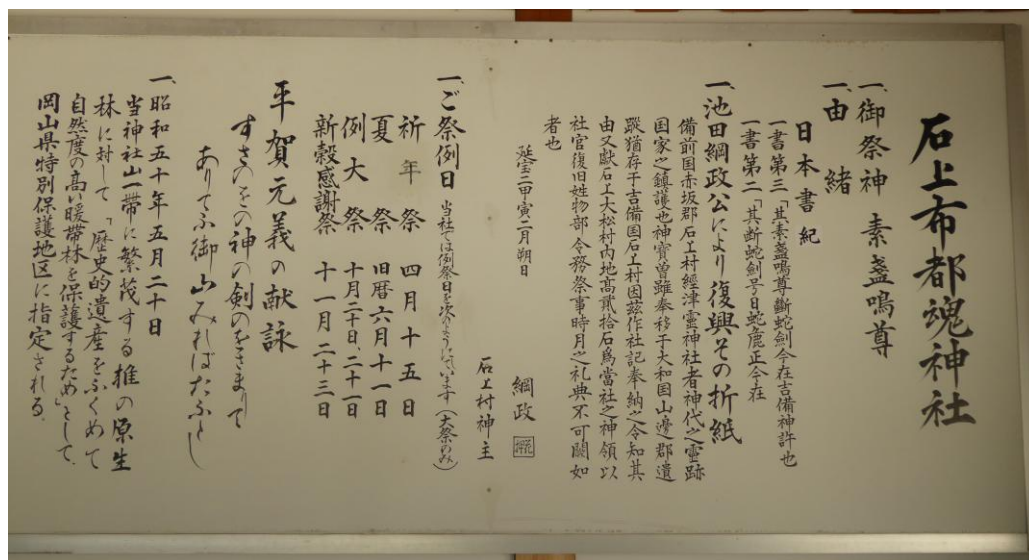 石上布都魂神社
一、御祭神 素盞嗚尊
一、由緒
日本書紀
一書第三「其素盞嗚尊斷蛇劍今在吉備神許也
一書第二「其断蛇劍号曰蛇麁正今在
一、池田綱政公により復興その折紙
備前国赤坂郡石上村經津霊神社者神代之霊跡
国家之鎮護也神寶曽雖奉移于大和国山邊郡遺
蹤猶存于吉備国石上村因茲作社記奉納之令知其
由又獻石上大松村内地髙貳拾石爲當社之神領以
社官復旧姓物部 令務祭事時月之礼典不可闕如
者也
延宝二甲寅二月朔日
綱政
石上村神主
一、ご祭例日 当社では例祭日を次のようにしています(大祭のみ)
祈年祭 四月十五日
夏祭 旧暦六月十一日
例大祭 十月二十日、二十一日
新穀感謝祭 十一月二十三日
平賀元義の献詠
すさのをの神の剣のをさまりて
ありてふ御山みればたふとし
一、昭和五十年五月二十日
当神社山一帯に繁茂する椎の原生
林に対して「歴史的遺産をふくめて
自然度の高い暖帯林を保護するため」として、
岡山県特別保護地区に指定される。